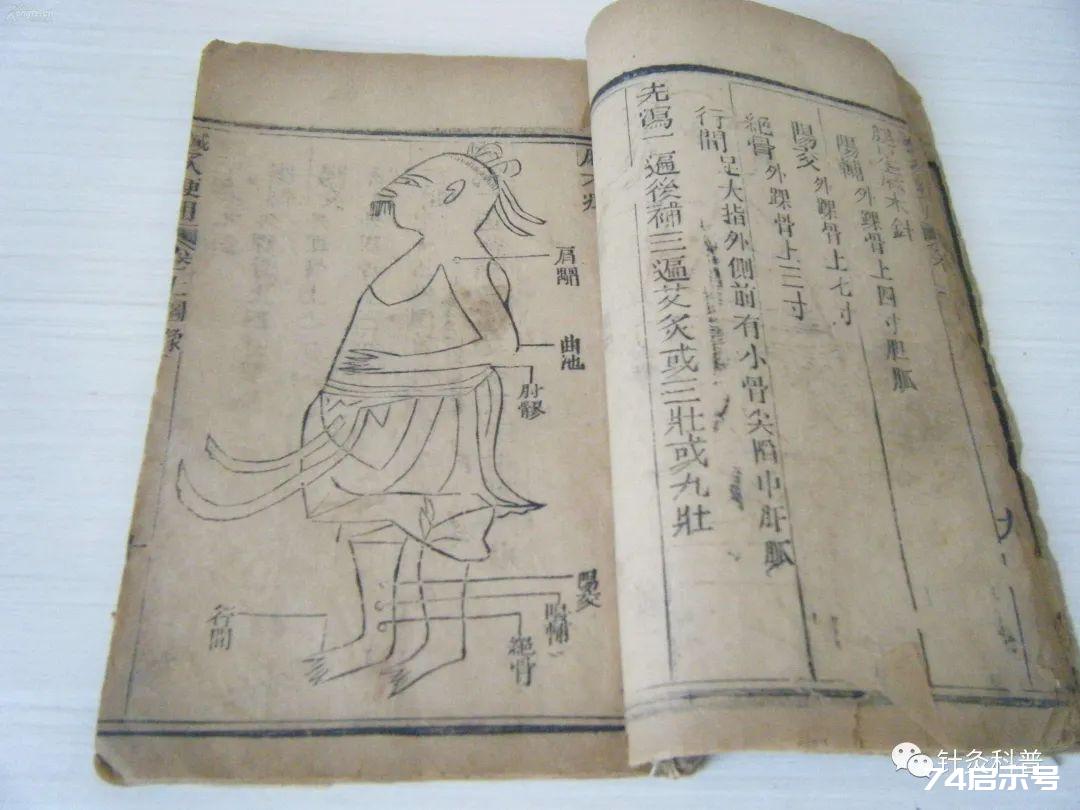 陽輔 外踝骨上四寸胆脈
陽交 外踝骨上七寸
絕骨 外踝骨上三寸
行間 足大指外側前有小骨尖陷中肝脈
先瀉一遍後補三遍艾灸或三壯或九壯
肩髃
曲池
肘髎
陽交
陽輔
絕骨
間
针灸科普
74启示号